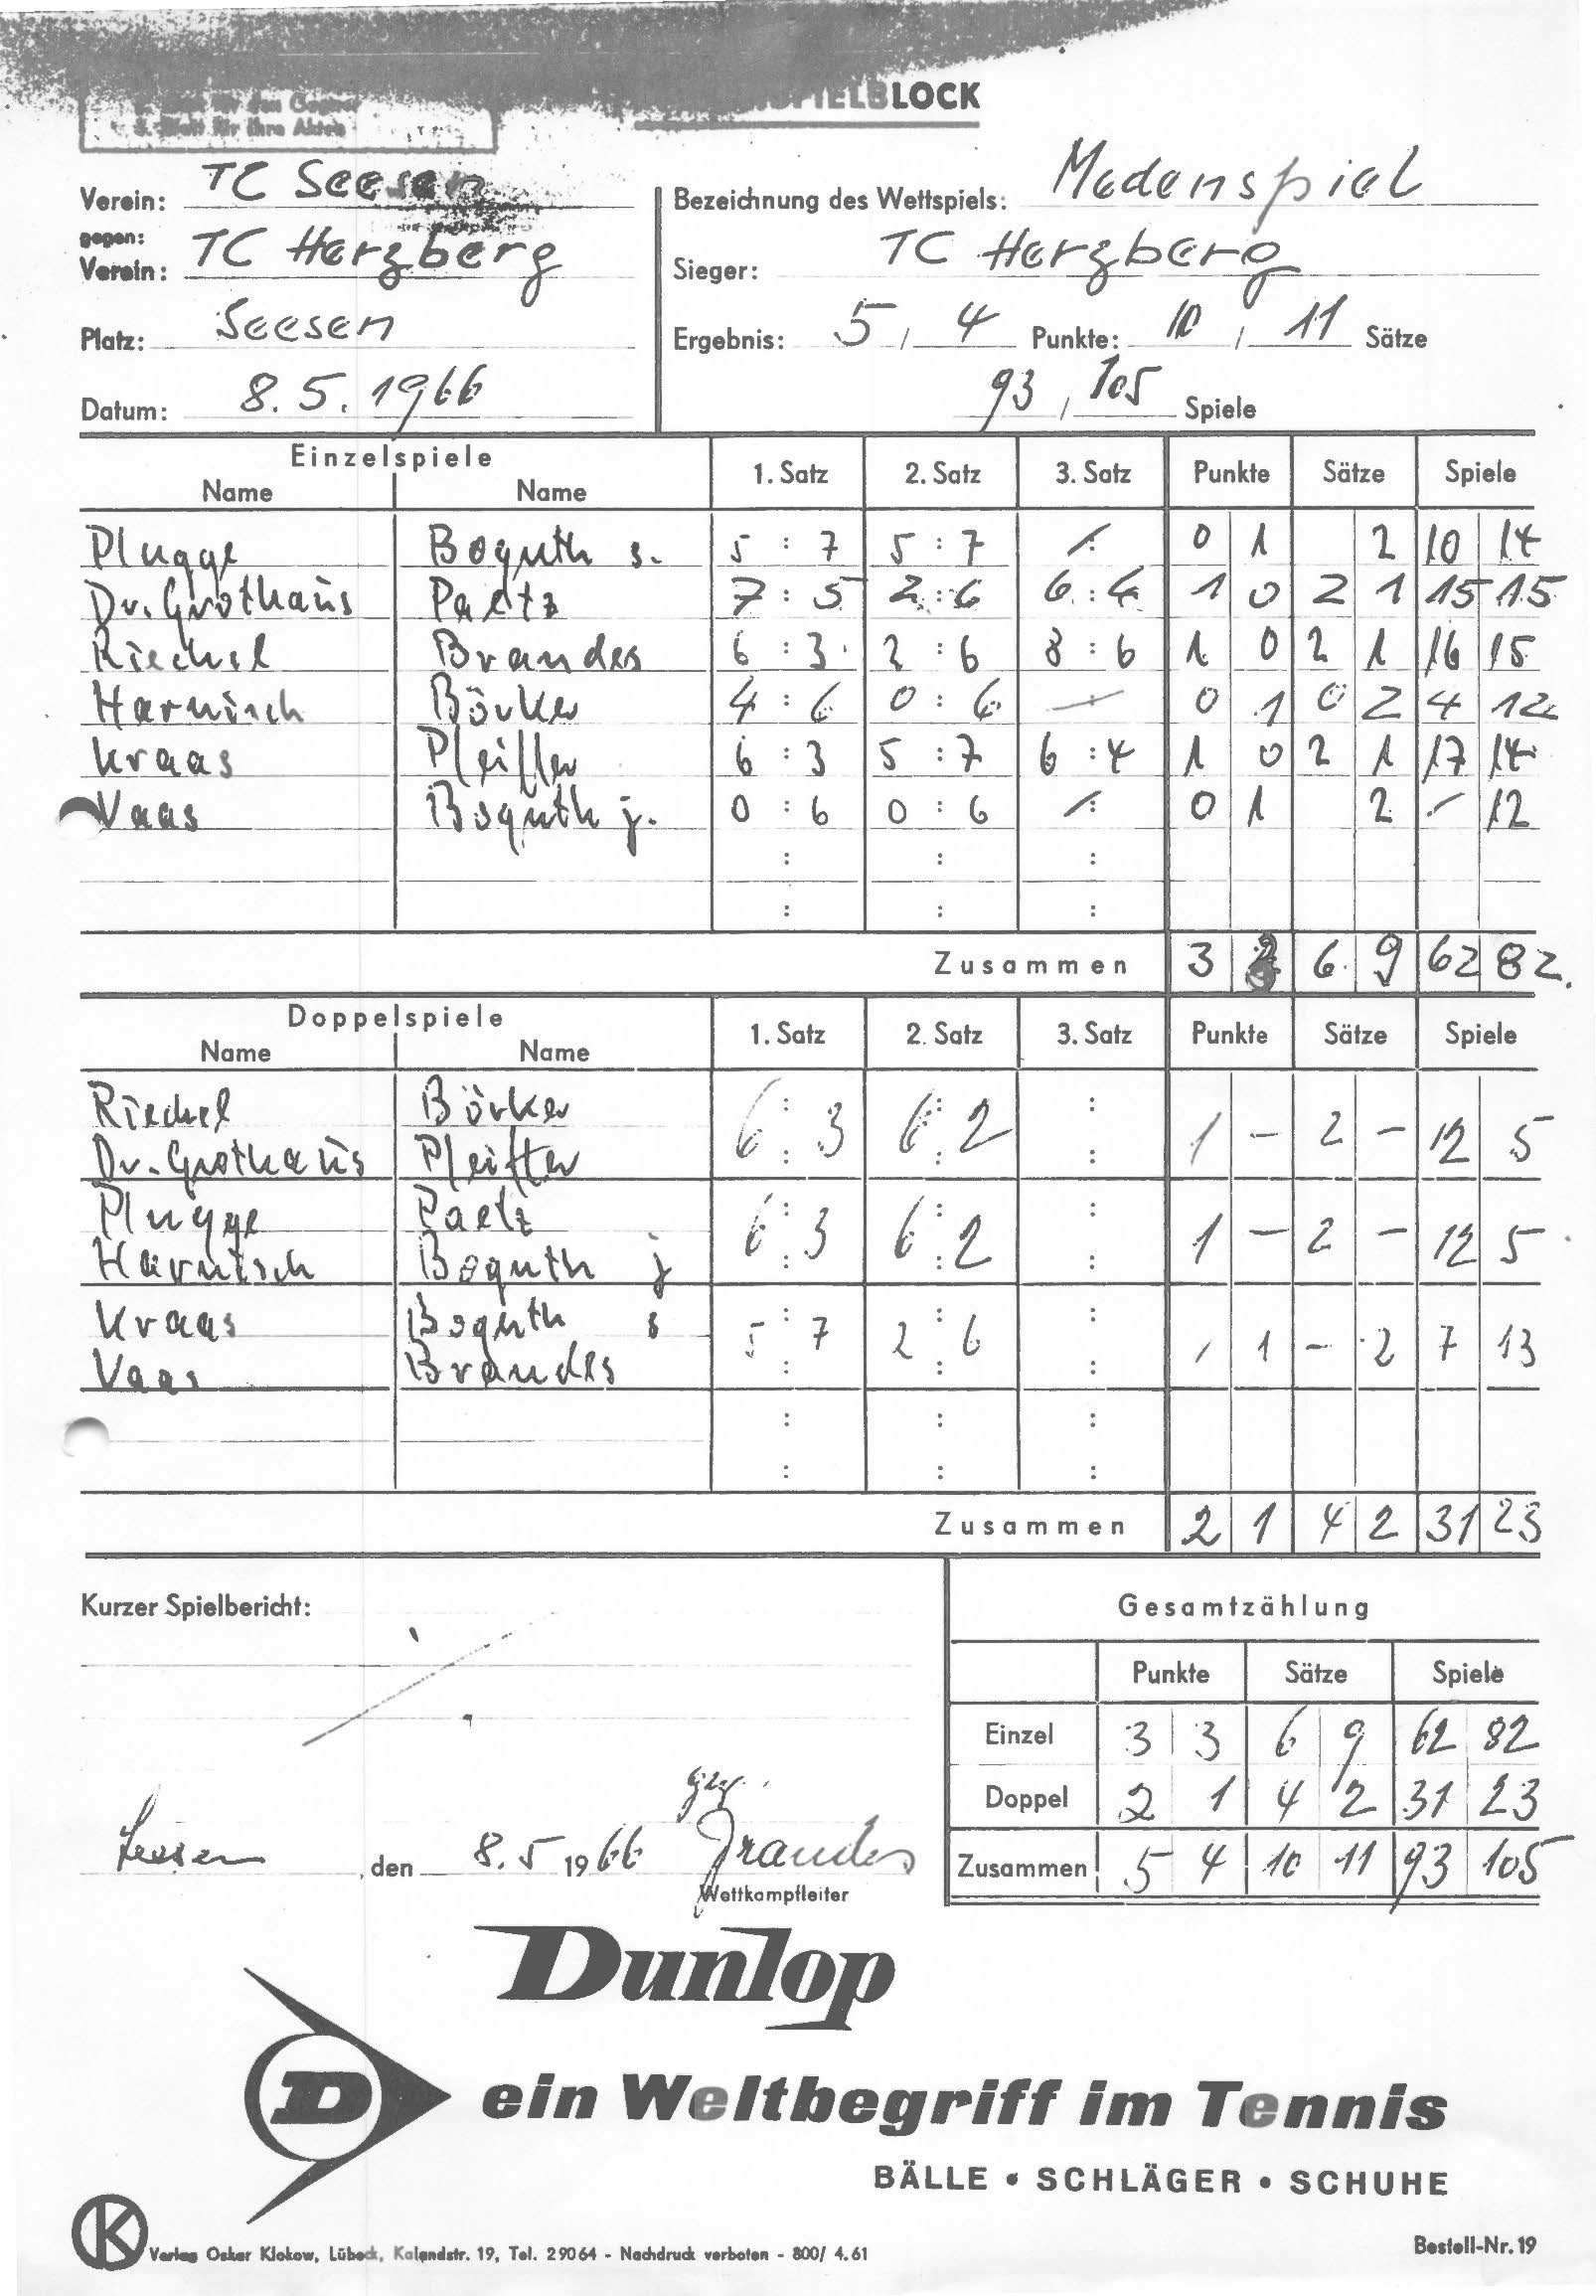 LOCK
3. Blatt für Ihre Akten
Verein: TC Seesen
gegen:
Verein: TC Herzberg
Platz: Seesen
Datum: 8.5.1966
Bezeichnung des Wettspiels: Medenspiel
Sieger: TC Herzberg
Ergebnis: 5 / 4 Punkte: 10 / 11 Sätze
93 / 105 Spiele
Einzelspiele
Name Name 1. Satz 2. Satz 3. Satz Punkte Sätze Spiele
Plugge Boguth s. 5 : 7 5 : 7 0 1 2 10 14
Dr. Grothaus Paetz 7 : 5 2 : 6 6 : 4 1 0 2 1 15 15
Riechel Brandes 6 : 3 2 : 6 8 : 6 1 0 2 1 16 15
Harnisch Börker 4 : 6 0 : 6 – 0 1 0 2 4 12
Kraas Pfeiffer 6 : 3 5 : 7 6 : 4 1 0 2 1 17 14
Vaas Boguth j. 0 : 6 0 : 6 0 1 2 – 12
Zusammen 3 6 9 62 82
Doppelspiele
Name Name 1. Satz 2. Satz 3. Satz Punkte Sätze Spiele
Riechel Börker
Dr. Grothaus Pfeiffer 6 : 3 6 : 2 1 – 2 – 12 5
Plugge Paetz
Harnisch Boguth j 6 : 3 6 : 2 1 – 2 – 12 5
Kraas Boguth s
Vaas Brandes 5 : 7 2 : 6 1 – 2 7 13
Zusammen 2 1 4 2 31 23
Kurzer Spielbericht:
Gesamtzählung
Punkte Sätze Spiele
Einzel 3 3 6 9 62 82
Doppel 2 1 4 2 31 23
Zusammen 5 4 10 11 93 105
gez.
Seesen, den 8.5 1966 Brandes
Wettkampfleiter
Dunlop
D
ein Weltbegriff im Tennis
BÄLLE • SCHLÄGER • SCHUHE
K
Verlag Oskar Klokow, Lübeck, Kalandstr. 19, Tel. 29064 - Nachdruck verboten - 800/ 4.61
Bestell-Nr. 19